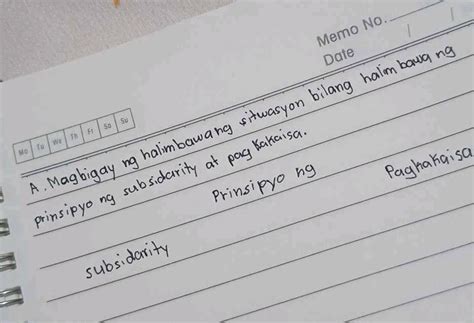 Memo No.
Date
Mo Tu We Th Fr Sa Su
A. Magbigay ng haimbawang sitwasyon bilang halimbawa ng
prinsipyo ng subsidarity at pagkakaisa.
Prinsipyo ng Pagkakaisa
subsidarity